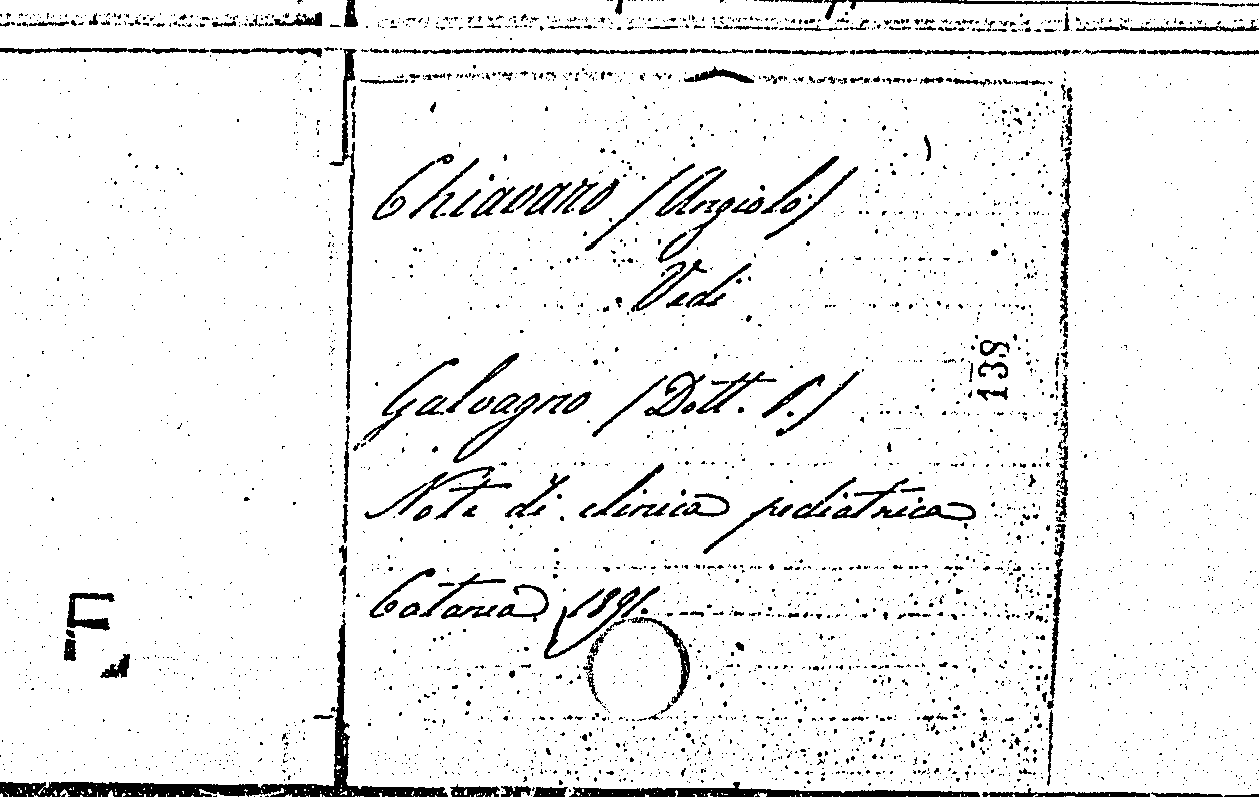 Chiavaro (Angiolo)
Vedi
Galvagno (Dott. P.)
Note di clinica pediatrica
Catania 1891.
138
F.